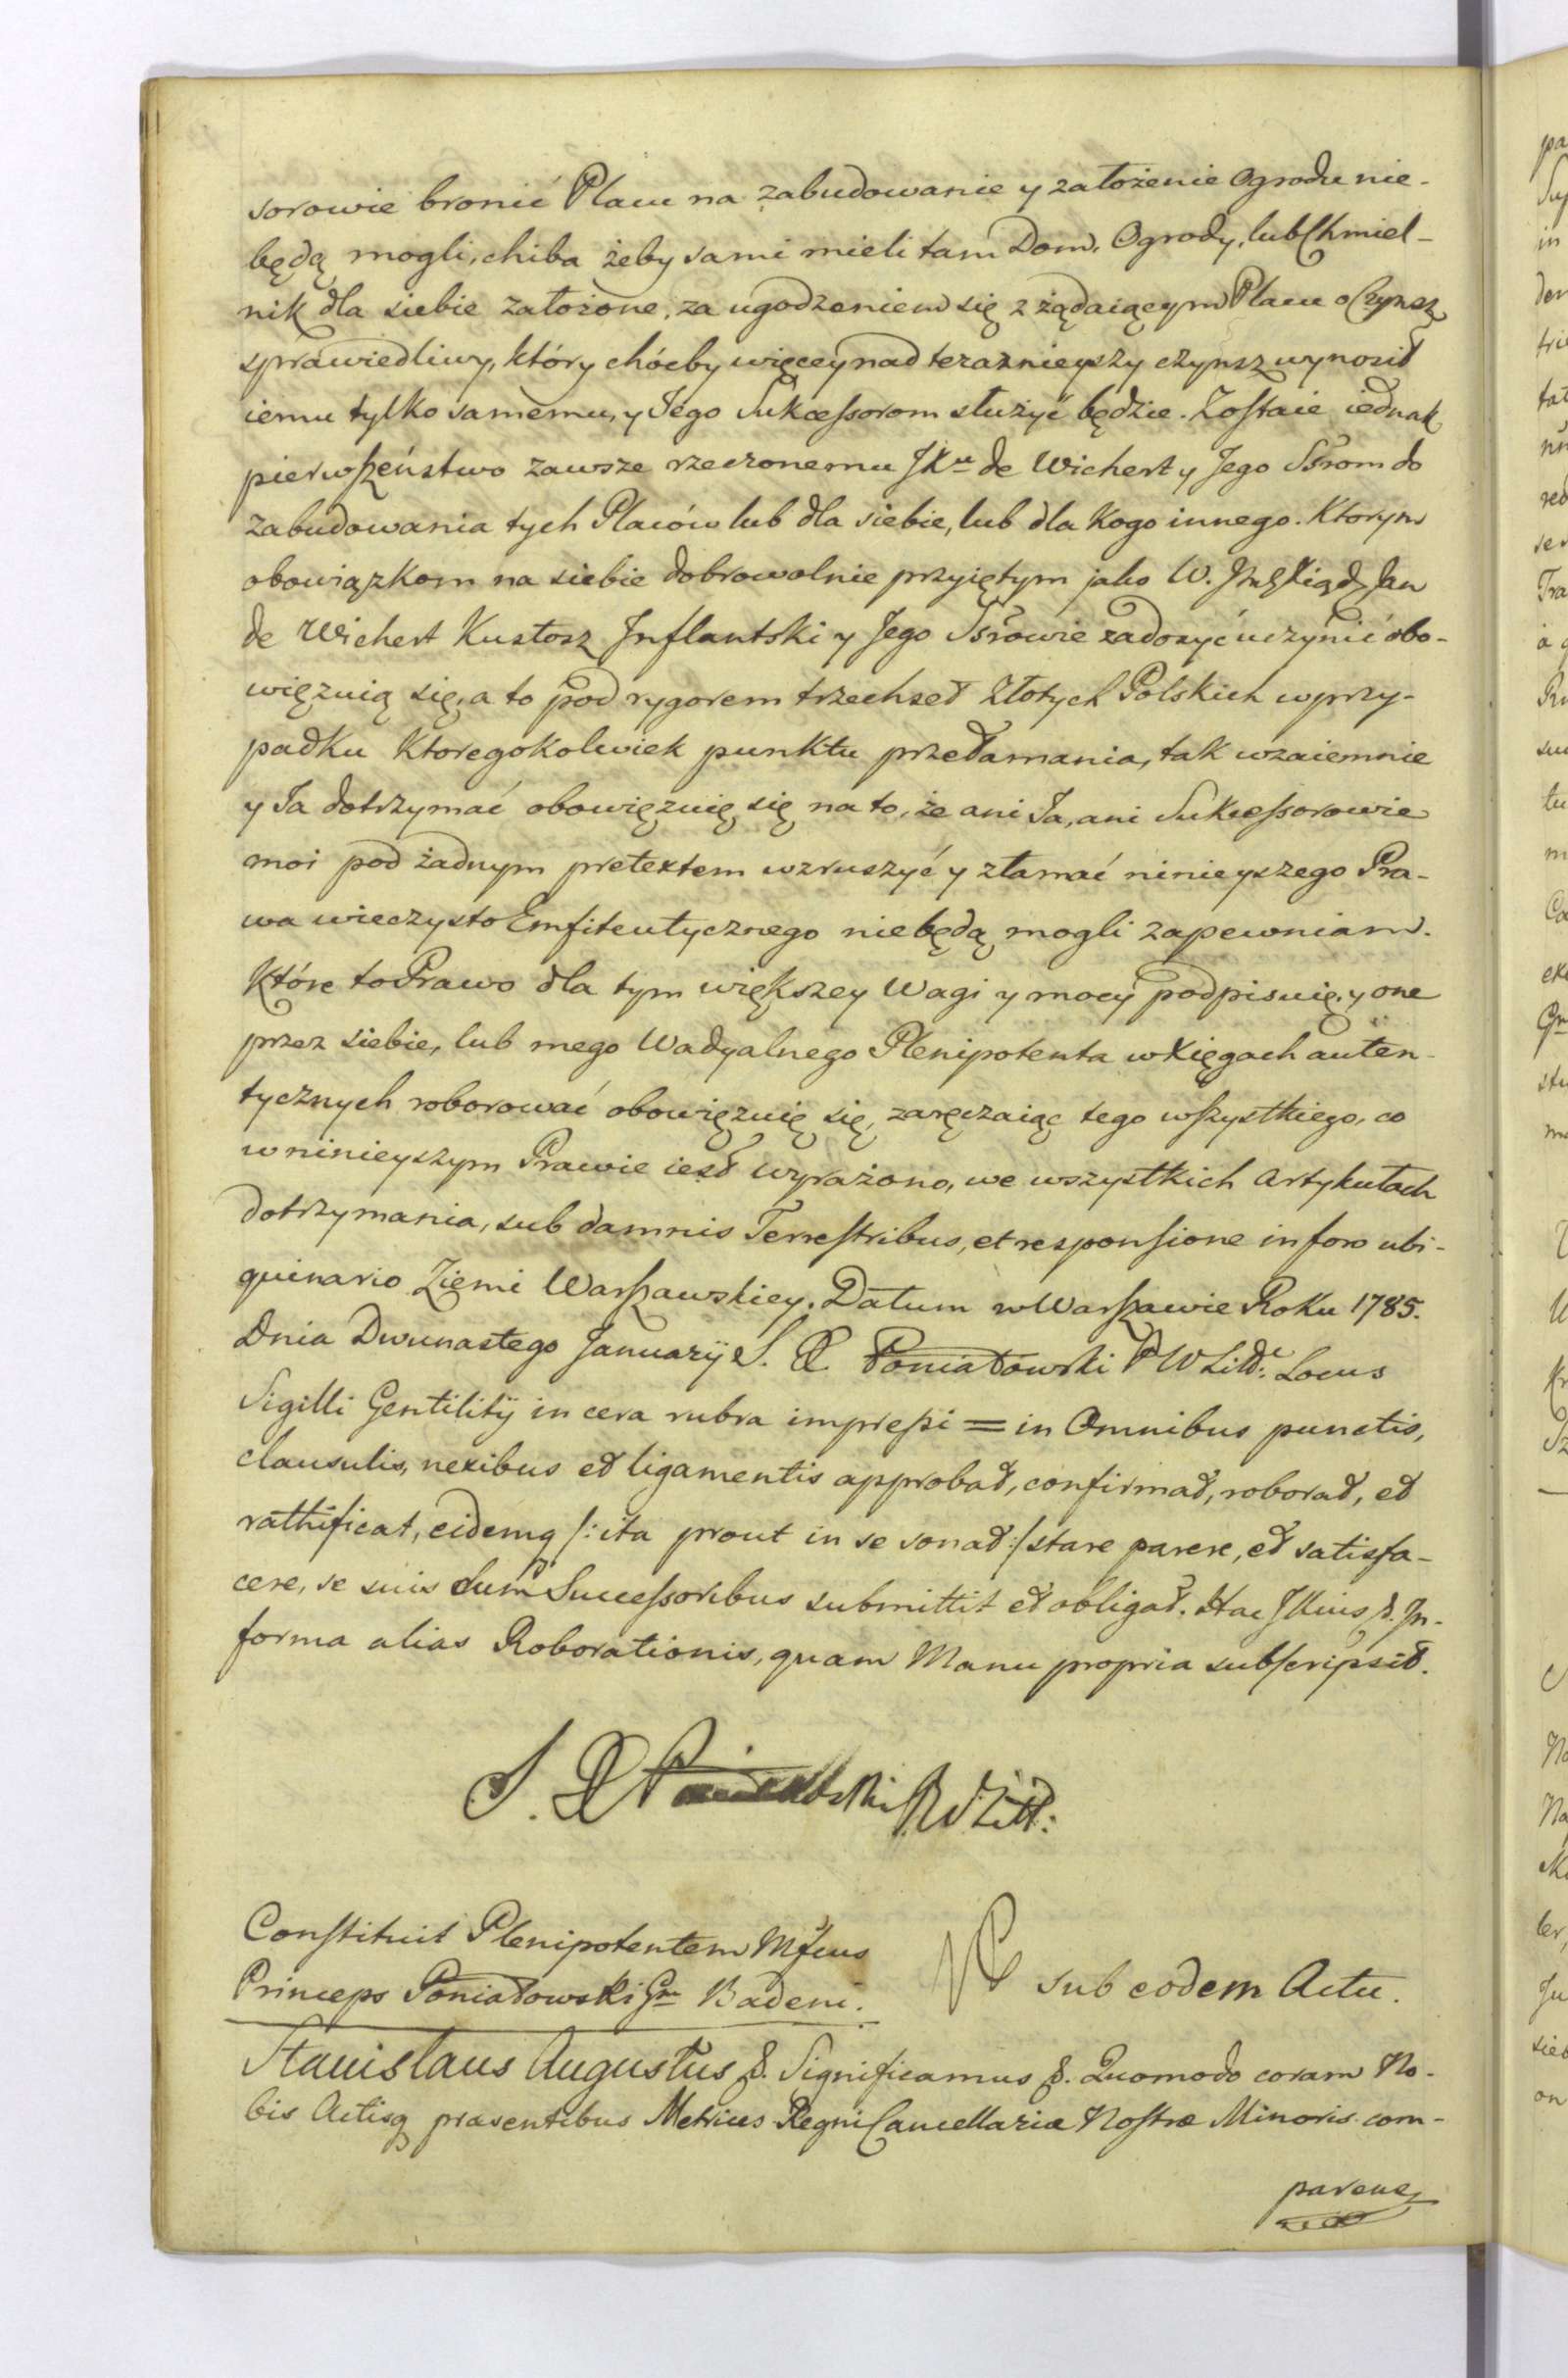 sorowie bronić Placu na zabudowanie y założenie Ogrodu nie-
będą mogli, chiba żeby sami mieli tam Dom, Ogrody, lub Chmiel-
nik dla siebie założone, za ugodzeniem się z żądaiącym Placu o Czynsz
sprawiedliwy, który chóćby więcey nad terazniejszy czynsz wynosił
iemu tylko samemu, y Jego Sukcessorom służyć będzie. Zostaie iednak
pierwszeństwo zawsze rzeczonemu JXu de Wichert y Jego Ssrom do
zabudowania tych Placów lub dla siebie, lub dla Kogo innego. Ktorym
obowiązkom na siebie dobrowolnie przyiętym jako W. Jmć Xiądz Jan
de Wichert Kustosz Inflantski y Jego Ssrowie zadosyć uczynić obo-
więzuią się, a to pod rygorem trzechset Złotych Polskich w przy-
padku Ktoregokolwiek punktu przełamania, tak wzaiemnie
y Ja dotrzymać obowięzuię się na to, że ani Ja, ani Sukcessorowie
moi pod żadnym pretextem wzruszyć y złamać ninieyszego Pra-
wa wieczysto Emfiteutycznego niebędą mogli zapewniam.
Które to Prawo dla tym większey Wagi y mocy podpisuię, y one
przez siebie, lub mego Wadyalnego Plenipotenta w Xięgach auten-
tycznych roborować obowięzuię się, zaręczaiąc tego wszystkiego, co
w ninieyszym Prawie iest wyrażono, we wszystkich Artykułach
dotrzymania, sub damnis Terrestribus, et responsione in foro ubi-
quinario Ziemi Warszawskiey. Datum w Warszawie Roku 1785.
Dnia Dwunastego Januarij S. X. Poniatowski PW Litt: Locus
Sigilli Gentilitij in cera rubra impressi = in Omnibus punctis,
clausulis, nexibus et ligamentis approbat, confirmat, roborat, et
rathificat, eidemq /: ita prout in se sonat :/ stare parere, et satisfa-
cere, se suis cum Successoribus submittit et obligat. Hac JKius &. In-
forma alias Roborationis, quam Manu propria subscripsit.
S. X Poniatowski Litt:
Constituit Plenipotentem
Princeps Poniatowski Gm Badeni.
sub eodem Actu.
Stanislaus Augustus &. Significamus &. Quomodo coram No-
bis Actisq praesentibus Metrices Regni Cancellariae Nostrae Minoris com-
parens